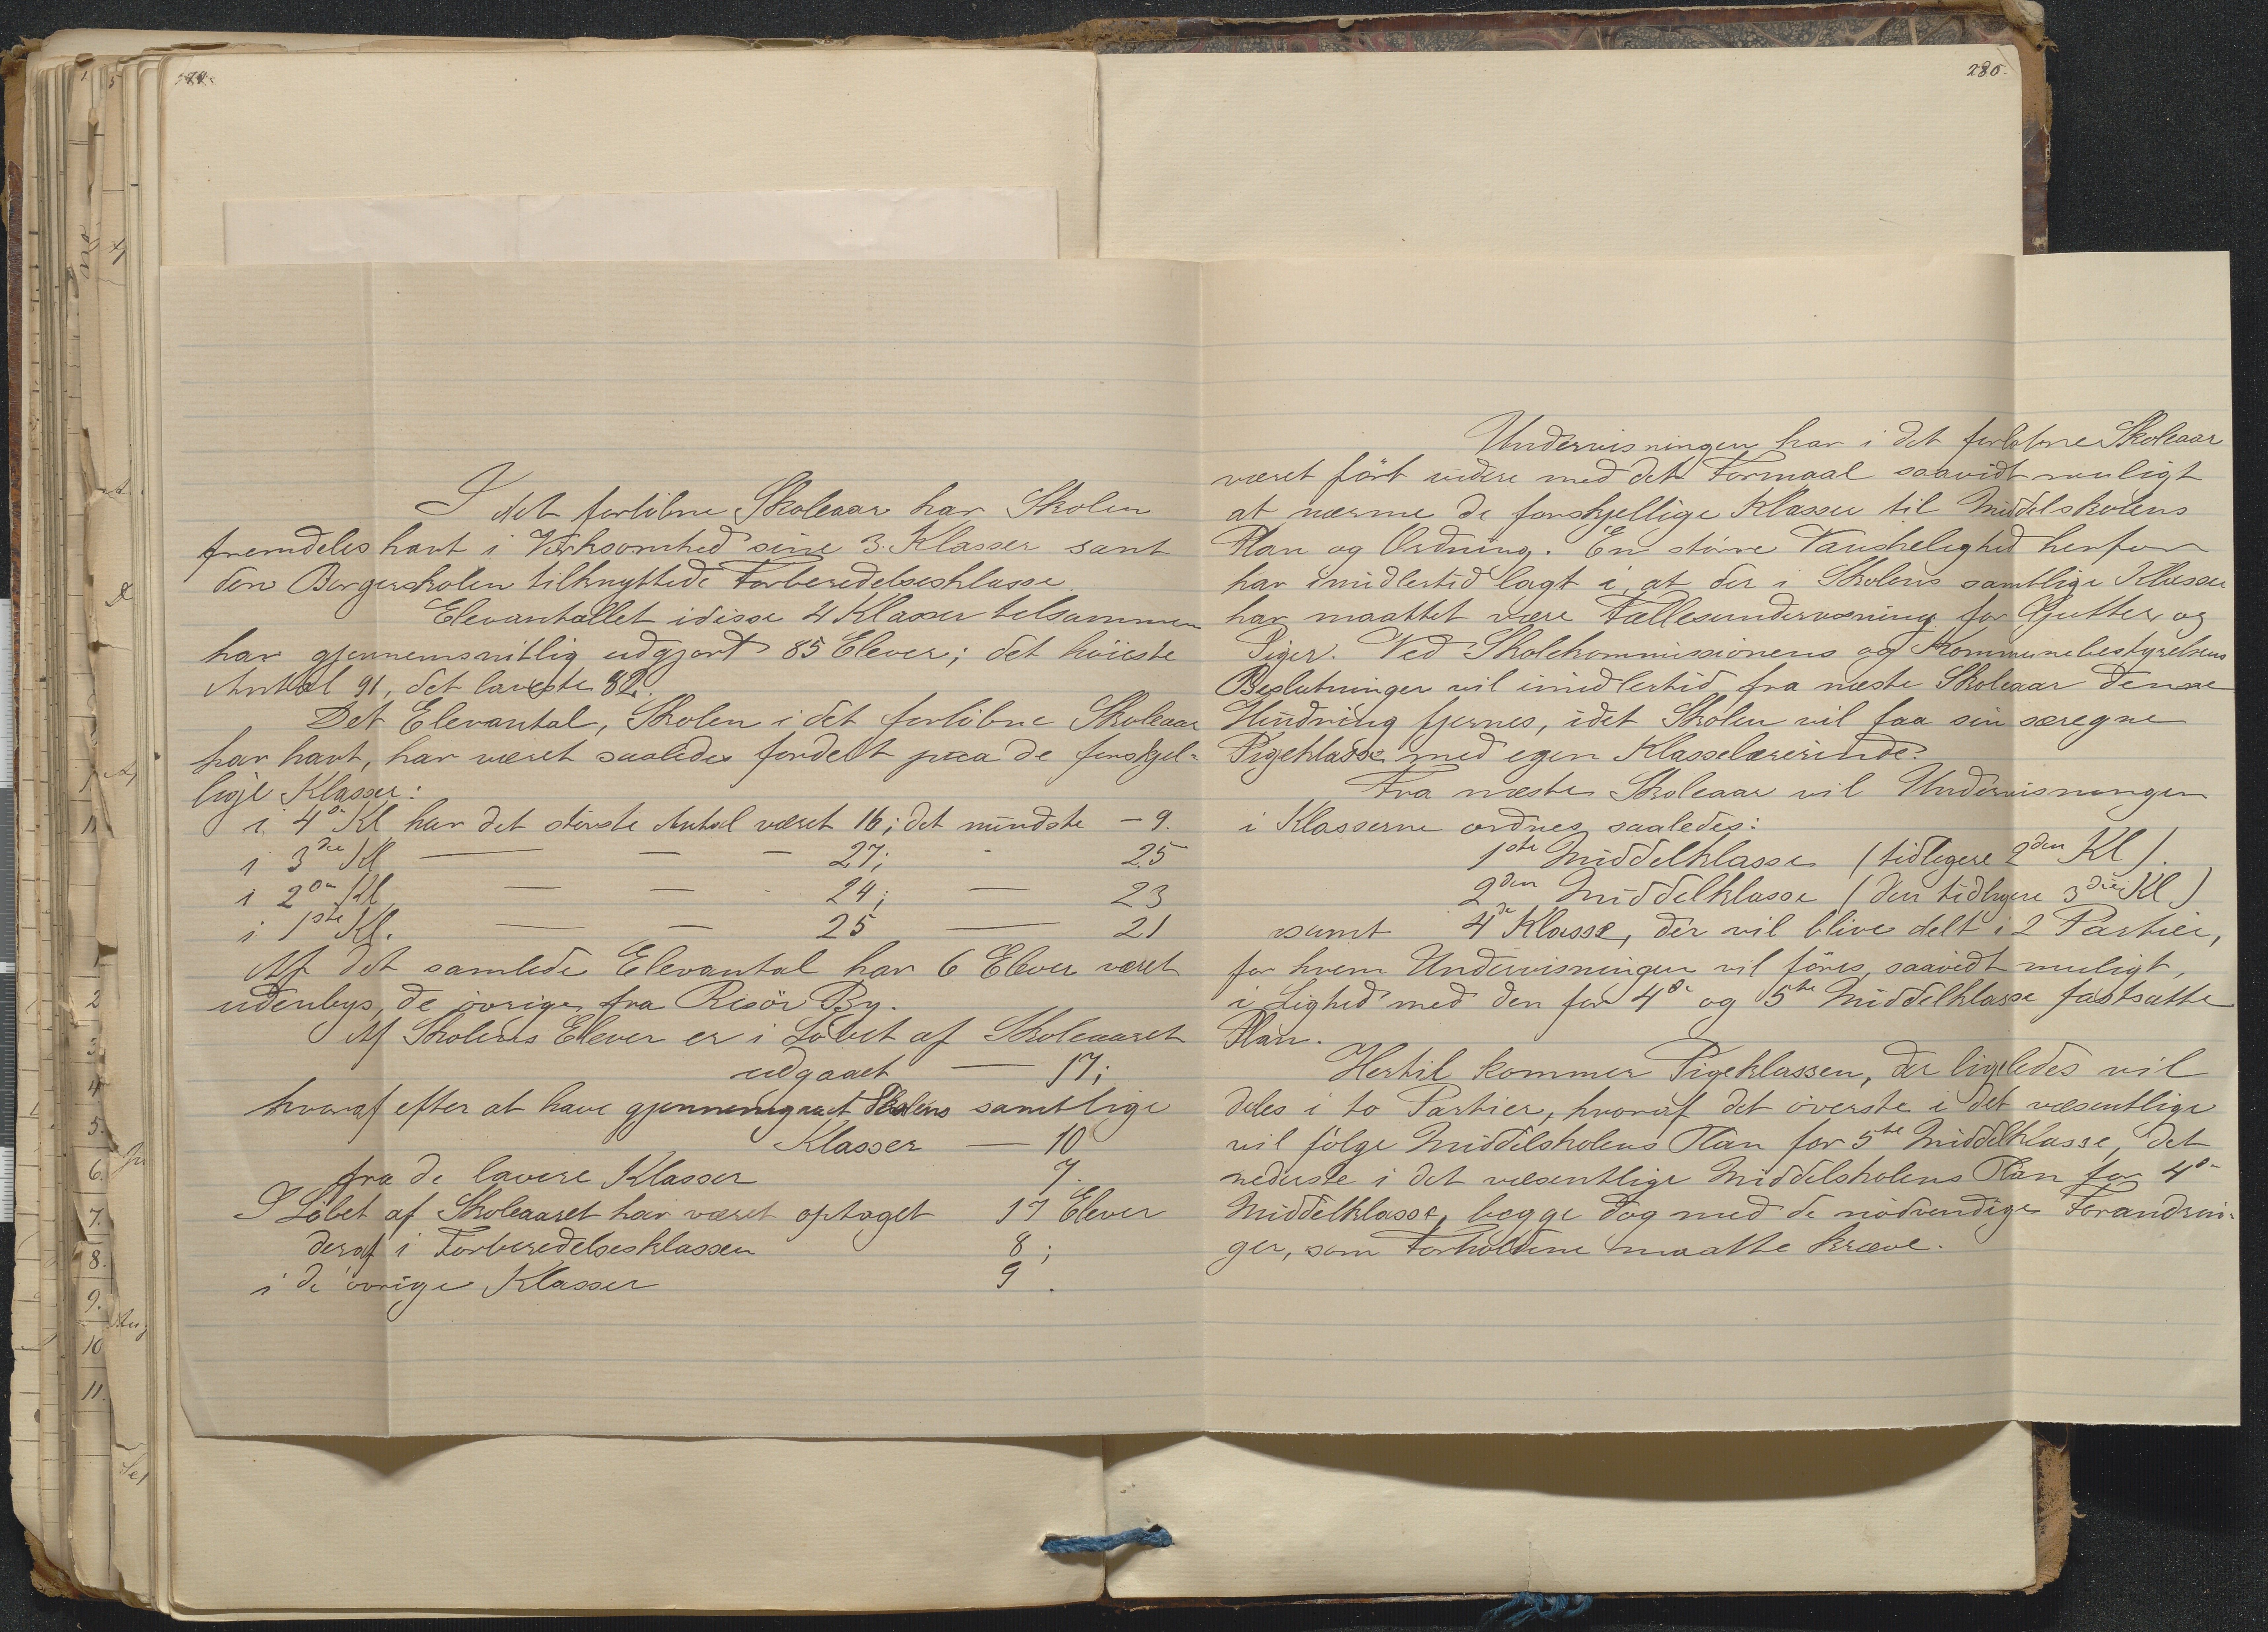 280.
I det forløbne Skoleaar har Skolen
fremdeles havt i Virksomhed sine 3. Klasser samt
den Borgerskolen tilknyttede Forberedelsesklasse.
Elevantallet i disse 4 Klasser tilsammen
har gjennemsnitlig udgjort 85 Elever; det høieste
Antal 91, det laveste 82.
Det Elevantal, Skolen i det forløbne Skoleaar
har havt, har været saaledes fordelt paa de forskjel-
lige Klasser:
i 4de Kl har det største Antal været 16; det mindste – 9.
i 3die Kl — — – 27; - 25
i 2den Kl — — - 24; — 23
i 1ste Kl. — — 25 — 21
Af det samlede Elevantal har 6 Elever været
udenbys, de øvrige fra Risør By.
Af Skolens Elever er i Løbet af Skoleaaret
udgaaet — 17;
hvoraf efter at have gjennemgaaet Skolens samtlige
Klasser — 10
fra de lavere Klasser 7.
I Løbet af Skoleaaret har været optaget 17 Elever
deraf i Forberedelsesklassen 8;
i de øvrige Klasser 9.
Undervisningen har i det forløbne Skoleaar
været ført videre med det Formaal saavidt muligt
at nærme de forskjellige Klasser til Middelskolens
Plan og Ordning. En større Vanskelighed herfor
har imidlertid lagt i, at der i Skolens samtlige Klasser
har maattet være Fællesundervisning for Gutter og
Piger. Ved Skolekommissionens og Kommunebestyrelsens
Beslutninger vil imidlertid fra næste Skoleaar denne
Hindring fjernes, idet Skolen vil faa sin særegne
Pigeklasse med egen Klasselærerinde.
Fra næste Skoleaar vil Undervisningen
i Klasserne ordnes saaledes:
1ste Middelklasse (tidligere 2den Kl).
2den Middelklasse (den tidligere 3die Kl)
samt 4de Klasse, der vil blive delt i 2 Partier,
for hvem Undervisningen vil føres, saavidt muligt,
i Lighed med den for 4de og 5te Middelklasse fastsatte
Plan.
Hertil kommer Pigeklassen, der ligeledes vil
deles i to Partier, hvoraf det øverste i det væsentlige
vil følge Middelskolens Plan for 5te Middelklasse, det
nederste i det væsentlige Middelskolens Plan for 4de
Middelklasse, begge dog med de nødvendige Forandrin-
ger, som Forholdene maatte kræve.
1
2
3
4
5.
6.
7.
8.
9.
10
11.